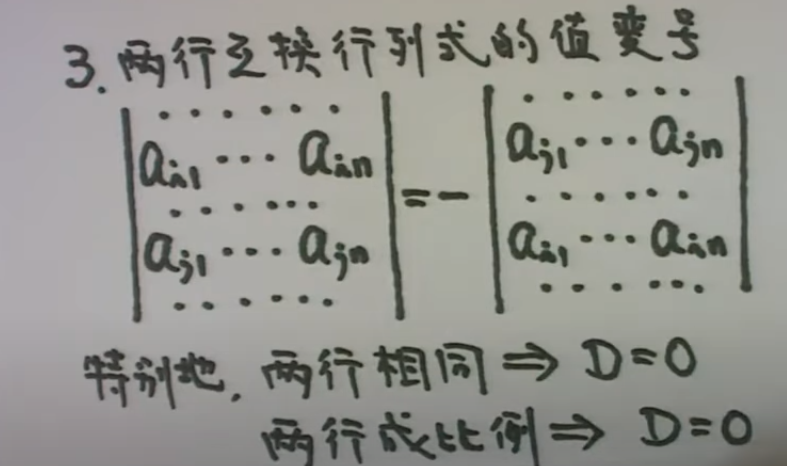 3. 两行互换行列式的值变号
| · · · · · · | | · · · · · · |
| aᵢ₁ ··· aᵢₙ | | aⱼ₁ ··· aⱼₙ |
| · · · · · · | = − | · · · · · · |
| aⱼ₁ ··· aⱼₙ | | aᵢ₁ ··· aᵢₙ |
| · · · · · · | | · · · · · · |
特别地, 两行相同 ⇒ D=0
两行成比例 ⇒ D=0